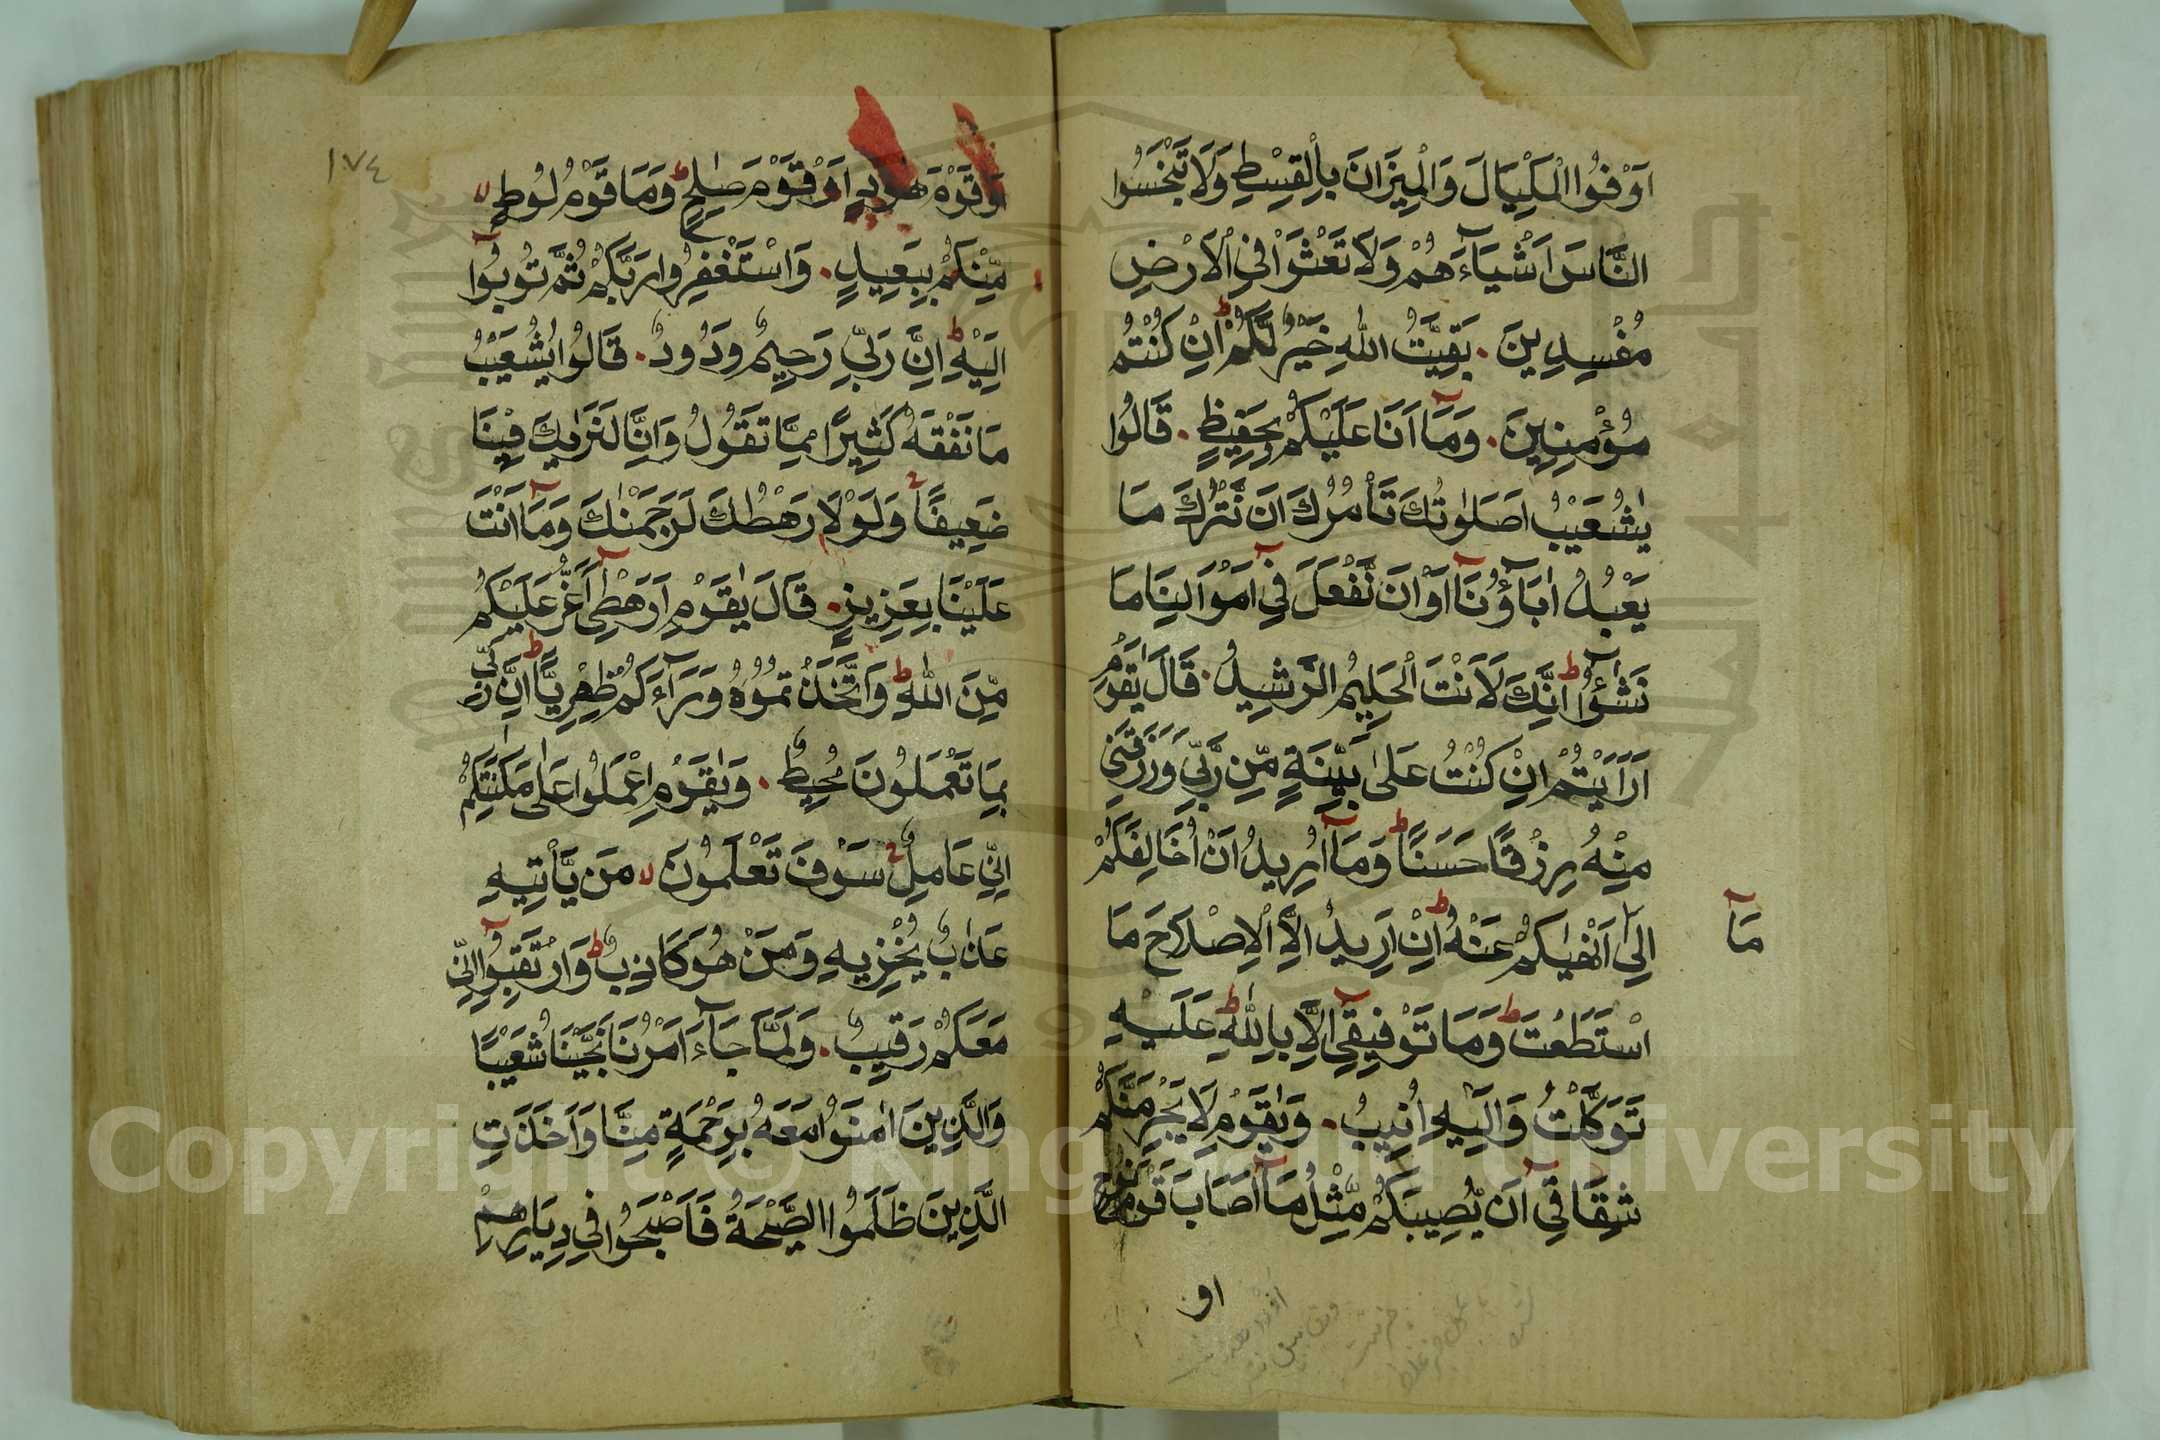 اَوْفُوا الْمِكْيَالَ وَالْمِيْزَانَ بِالْقِسْطِ وَلَا تَبْخَسُوا
النَّاسَ اَشْيَآءَهُمْ وَلَا تَعْثَوْا فِي الْاَرْضِ
مُفْسِدِينَ ۰ بَقِيَّتُ اللّٰهِ خَيْرٌ لَّكُمْ ط اِنْ كُنْتُمْ
مُؤْمِنِينَ ۰ وَمَآ اَنَا عَلَيْكُمْ بِحَفِيظٍ ۰ قَالُوا
يٰشُعَيْبُ اَصَلٰوتُكَ تَاْمُرُكَ اَنْ نَّتْرُكَ مَا
يَعْبُدُ اٰبَآؤُنَآ اَوْ اَنْ نَّفْعَلَ فِيٓ اَمْوَالِنَا مَا
نَشٰٓؤُا ط اِنَّكَ لَاَنْتَ الْحَلِيمُ الرَّشِيدُ ۰ قَالَ يٰقَوْمِ
اَرَاَيْتُمْ اِنْ كُنْتُ عَلٰى بَيِّنَةٍ مِّنْ رَّبِّي وَرَزَقَنِي
مِنْهُ رِزْقًا حَسَنًا ط وَمَآ اُرِيدُ اَنْ اُخَالِفَكُمْ
مَآ
اِلٰى اَنْهٰيكُمْ عَنْهُ ط اِنْ اُرِيدُ اِلَّا الْاِصْلَاحَ مَا
اسْتَطَعْتُ ط وَمَا تَوْفِيقِيٓ اِلَّا بِاللّٰهِ ط عَلَيْهِ
تَوَكَّلْتُ وَاِلَيْهِ اُنِيبُ ۰ وَيٰقَوْمِ لَا يَجْرِمَنَّكُمْ
شِقَاقِيٓ اَنْ يُّصِيبَكُمْ مِّثْلُ مَآ اَصَابَ قَوْمَ نُوحٍ
او
١٧٤
اَوْ قَوْمَ هُودٍ اَوْ قَوْمَ صٰلِحٍ ط وَمَا قَوْمُ لُوطٍ لا
مِّنْكُمْ بِبَعِيدٍ ۰ وَاسْتَغْفِرُوا رَبَّكُمْ ثُمَّ تُوبُوٓا
اِلَيْهِ ط اِنَّ رَبِّي رَحِيمٌ وَدُودٌ ۰ قَالُوا يٰشُعَيْبُ
مَا نَفْقَهُ كَثِيرًا مِّمَّا تَقُولُ وَاِنَّا لَنَرٰيكَ فِينَا
ضَعِيفًا ج وَلَوْلَا رَهْطُكَ لَرَجَمْنٰكَ وَمَآ اَنْتَ
عَلَيْنَا بِعَزِيزٍ ۰ قَالَ يٰقَوْمِ اَرَهْطِيٓ اَعَزُّ عَلَيْكُمْ
مِّنَ اللّٰهِ ط وَاتَّخَذْتُمُوهُ وَرَآءَكُمْ ظِهْرِيًّا ط اِنَّ رَبِّي
بِمَا تَعْمَلُونَ مُحِيطٌ ۰ وَيٰقَوْمِ اعْمَلُوا عَلٰى مَكَانَتِكُمْ
اِنِّي عَامِلٌ ج سَوْفَ تَعْلَمُونَ لا مَنْ يَّاْتِيهِ
عَذَابٌ يُخْزِيهِ وَمَنْ هُوَ كَاذِبٌ ط وَارْتَقِبُوٓا اِنِّي
مَعَكُمْ رَقِيبٌ ۰ وَلَمَّا جَآءَ اَمْرُنَا نَجَّيْنَا شُعَيْبًا
وَالَّذِينَ اٰمَنُوا مَعَهُ بِرَحْمَةٍ مِنَّا وَاَخَذَتِ
الَّذِينَ ظَلَمُوا الصَّيْحَةُ فَاَصْبَحُوا فِي دِيَارِهِمْ
Copyright © King Saud University